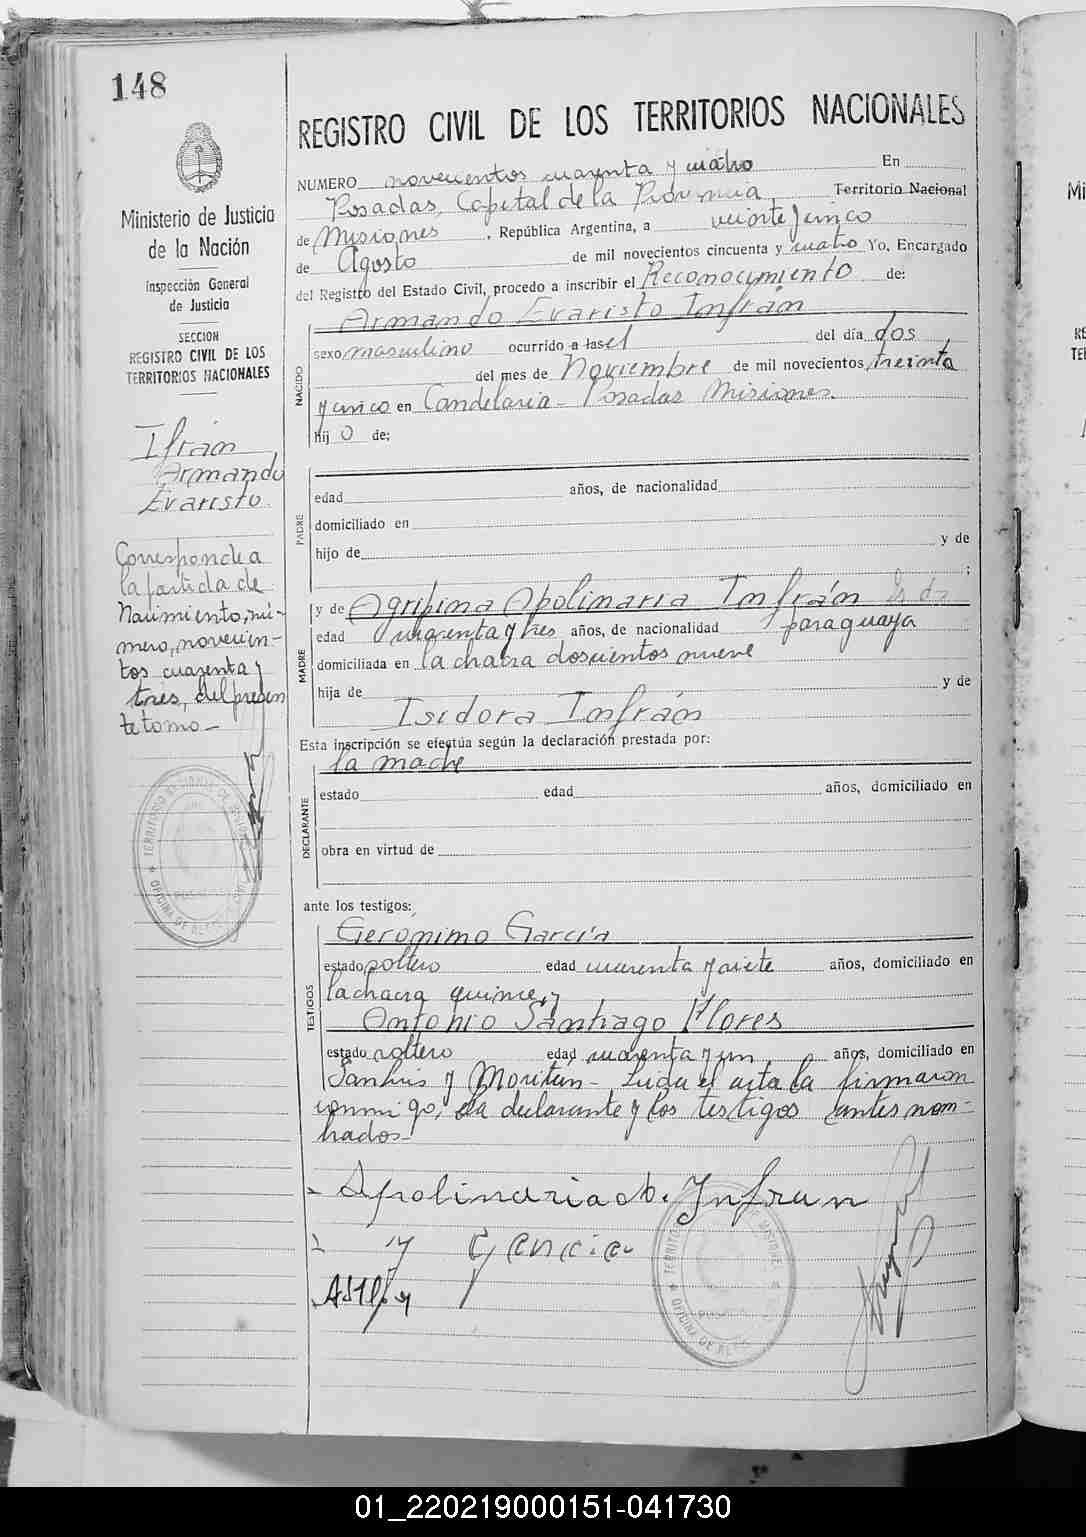 148
REGISTRO CIVIL DE LOS TERRITORIOS NACIONALES
Ministerio de Justicia
de la Nación
Inspección General
de Justicia
SECCION
REGISTRO CIVIL DE LOS
TERRITORIOS NACIONALES
Ifrán
Armando
Evaristo.
Corresponde a
la partida de
Nacimiento, nú-
mero, novecien-
tos cuarenta y
tres, del presen
te tomo-
NUMERO novecientos cuarenta y cuatro En
Posadas, Capital de la Provincia Territorio Nacional
de Misiones, República Argentina, a veinte y cinco
de Agosto de mil novecientos cincuenta y cuatro Yo, Encargado
del Registro del Estado Civil, procedo a inscribir el Reconocimiento de:
Armando Evaristo Infrán
NACIDO
sexo masculino ocurrido a las el del día dos
del mes de Noviembre de mil novecientos treinta
y cinco en Candelaria - Posadas Misiones.
hij o de:
PADRE
edad años, de nacionalidad
domiciliado en
hijo de y de
;
MADRE
y de Agripina Apolinaria Infrán
edad cuarenta y tres años, de nacionalidad paraguaya
domiciliada en la chacra doscientos nueve
hija de y de
Isidora Infrán
Esta inscripción se efectúa según la declaración prestada por:
la madre
DECLARANTE
estado edad años, domiciliado en
obra en virtud de
ante los testigos:
TESTIGOS
Gerónimo García
estado soltero edad cuarenta y siete años, domiciliado en
la chacra quince, y
Antonio Santiago Flores
estado soltero edad cuarenta y un años, domiciliado en
San Luis y Moritán - Leida el acta la firmaron
conmigo, la declarante y los testigos antes nom-
brados-
Apolinaria Infran
y Garcia
01_220219000151-041730